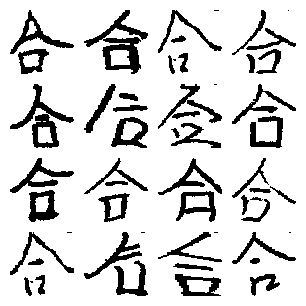 合合合合
合合合合
合合合合
合合合合